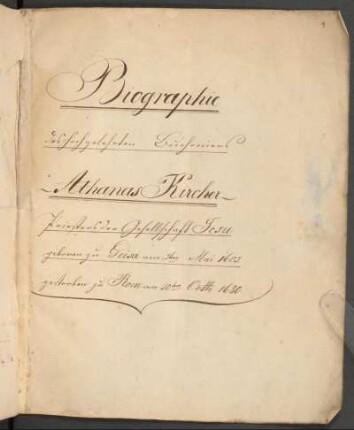 Biographie
des hochgelehrten Buchoniers
Athanas Kircher
Priesters der Gesellschaft Jesu
geboren zu Geisa am 2ten Mai 1602
gestorben zu Rom am 30ten Octb. 1680.